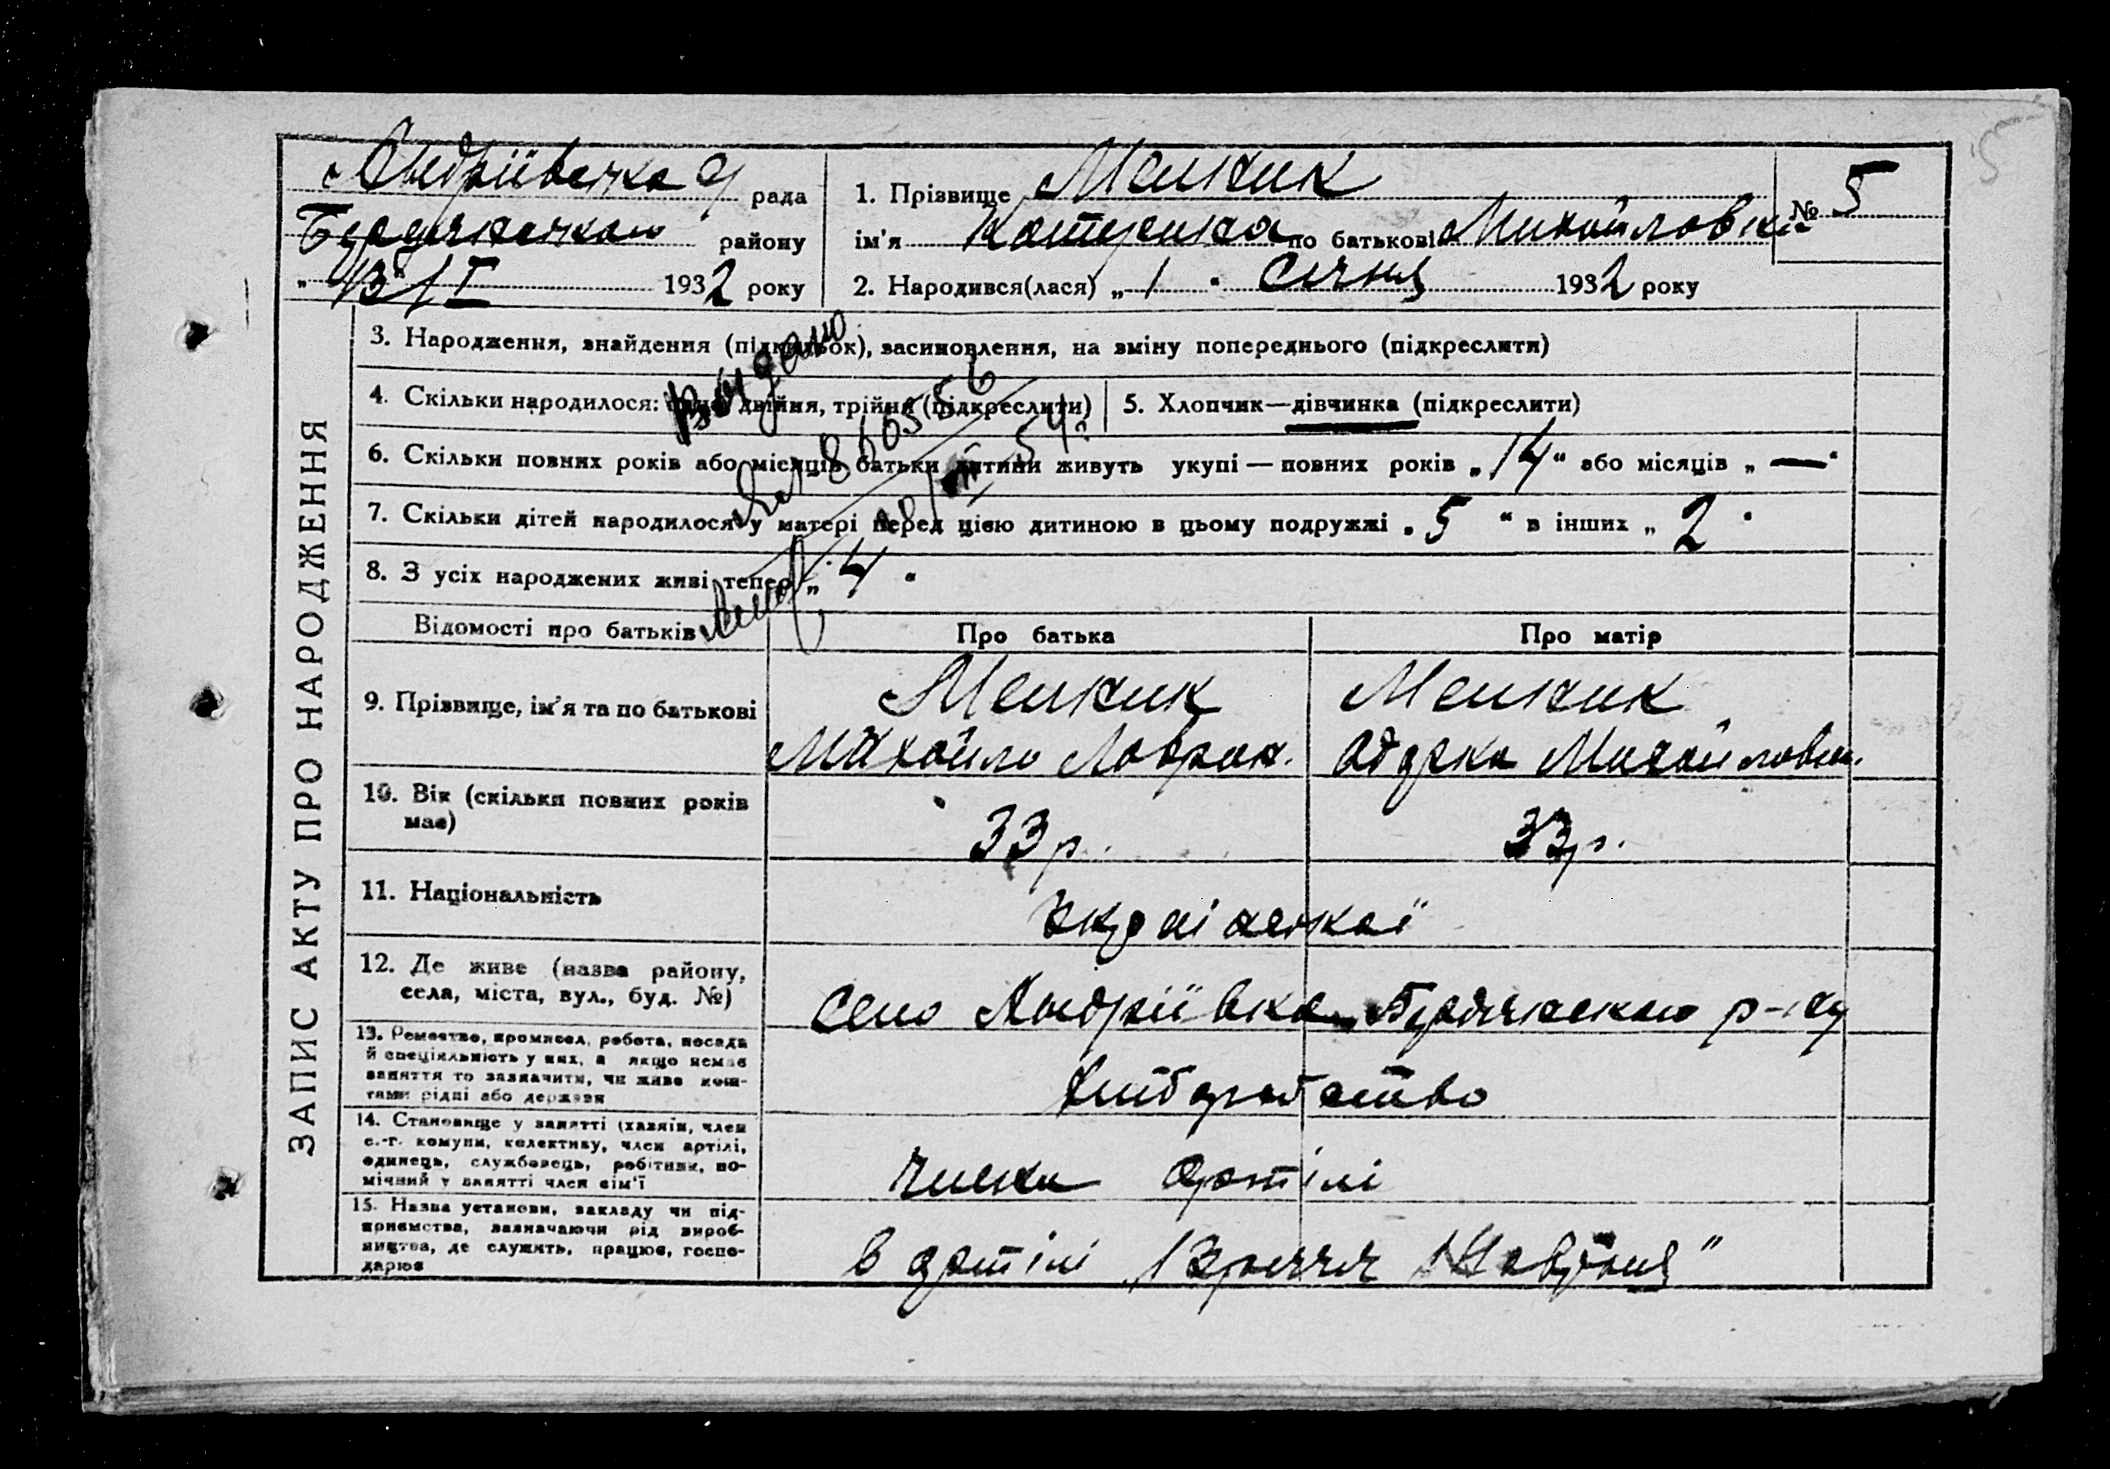 Андріївська рада
Бердянського району
„ 13/I 1932 року
1. Прізвище Мельник
ім'я Катерина по батькові Михайловна
№ 5
5
2. Народився(лася) „ 1 " Січня 1932 року
ЗАПИС АКТУ ПРО НАРОДЖЕННЯ
3. Народження, знайдення (підкидьок), засиновлення, на зміну попереднього (підкреслити)
4. Скільки народилося: двійня, трійня (підкреслити)
5. Хлопчик—дівчинка (підкреслити)
Видано
6. Скільки повних років або місяців батьки дитини живуть укупі — повних років „ 14 " або місяців „ — "
7. Скільки дітей народилося у матері перед цією дитиною в цьому подружжі „ 5 " в інших „ 2 "
8. З усіх народжених живі тепер „ 4 "
Відомості про батьків
Про батька
Про матір
9. Прізвище, ім'я та по батькові
Мельник
Михайло Лаврик.
Мельник
Михайловн.
10. Вік (скільки повних років має)
33 р.
33 р.
11. Національність
української
12. Де живе (назва району, села, міста, вул., буд. №)
село Андріївка Бердянського р-ну
13. Ремество, промисел, робота, посада
й спеціяльність у них, а якщо немає
заняття то зазначити, чи живе кош-
тами рідні або держави
хліборобство
14. Становище у занятті (хазяїн, член
с.-г. комуни, колективу, член артілі,
одинець, службовець, робітник, по-
мічний у занятті член сім'ї
члени артілі
15. Назва установи, закладу чи під-
приємства, зазначаючи рід вироб-
ництва, де служить, працює, госпо-
дарює
в артілі